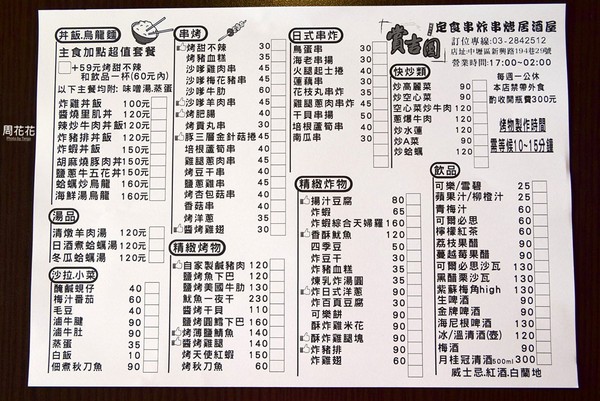 周花花
丼飯.烏龍麵
主食加點超值套餐
+59元烤甜不辣
和飲品一杯(60元內)
以下主餐均附:味噌湯.蒸蛋
炸雞丼飯 100元
醬燒里肌丼 120元
辣炒牛肉丼飯 120元
炸豬排丼飯 120元
炸蝦丼飯 120元
胡麻燒豚肉丼 120元
鹽蔥牛五花丼 120元
蛤蠣炒烏龍 160元
海鮮湯烏龍 160元
湯品
清燉羊肉湯 120元
日酒煮蛤蠣湯 120元
冬瓜蛤蠣湯 120元
沙拉.小菜
醃鹹蜆仔 40
梅汁番茄 60
毛豆 40
滷牛腱 90
滷牛肚 90
蒸蛋 35
白飯 10
佃煮秋刀魚 90
串烤
烤甜不辣 30
烤豬血糕 35
沙嗲雞肉串 35
沙嗲梅花豬串 40
沙嗲牛肋 60
沙嗲羊肉串 40
烤肥腸 40
烤貢丸串 30
豚三層金針菇捲 45
培根蘆筍串 40
雞腿蔥肉串 45
烤豆干串 30
鹽蔥雞串 45
烤杏包菇串 40
香菇串 40
烤洋蔥 35
醬烤雞翅 35
精緻烤物
自家製鹹豬肉 120
鹽烤魚下巴 120
鹽烤美國牛肋 130
魷魚一夜干 230
醬烤干貝 130
鹽烤圓鱈下巴 160
烤薄鹽鯖魚 120
醬烤雞腿 120
烤天使紅蝦 150
烤秋刀魚 60
日式串炸
鳥蛋串 30
海老串揚 40
火腿起士捲 40
蓮藕串 30
花枝丸串炸 30
雞腿蔥肉串炸 45
干貝串揚 50
培根蘆筍串 40
南瓜串 30
精緻炸物
揚汁豆腐 80
炸蝦 65
炸蝦綜合天婦羅 160
香酥魷魚 90
四季豆 50
炸豆干 30
炸豬血糕 35
煉乳炸湯圓 35
炸日式洋蔥 90
炸百頁豆腐 30
可樂餅 30
酥炸雞米花 70
酥炸雞腿塊 70
炸豬排 90
炸雞翅 60
賞吉園
定食串炸串烤居酒屋
訂位專線:03-2842512
店址:中壢區新興路194巷29號
營業時間:17:00~02:00
快炒類
炒高麗菜 90
炒空心菜 90
炒空心菜牛肉 120
蔥爆牛肉 120
炒水蓮 90
炒A菜 90
炒蛤蠣 120
每週一公休
本店禁帶外食
酌收開瓶費300元
烤物製作時間
需等候10~15分鐘
飲品
可樂/雪碧 25
蘋果汁/柳橙汁 25
青梅汁 60
可爾必思 60
檸檬紅茶 60
荔枝果醋 60
蔓越莓果醋 60
可爾必思沙瓦 130
黑醋栗沙瓦 130
紫蘇梅角high 130
生啤酒 90
金牌啤酒 90
海尼根啤酒 110
冰/溫清酒(壺) 120
梅酒 90
月桂冠清酒500ml 300
威士忌.紅酒.白蘭地